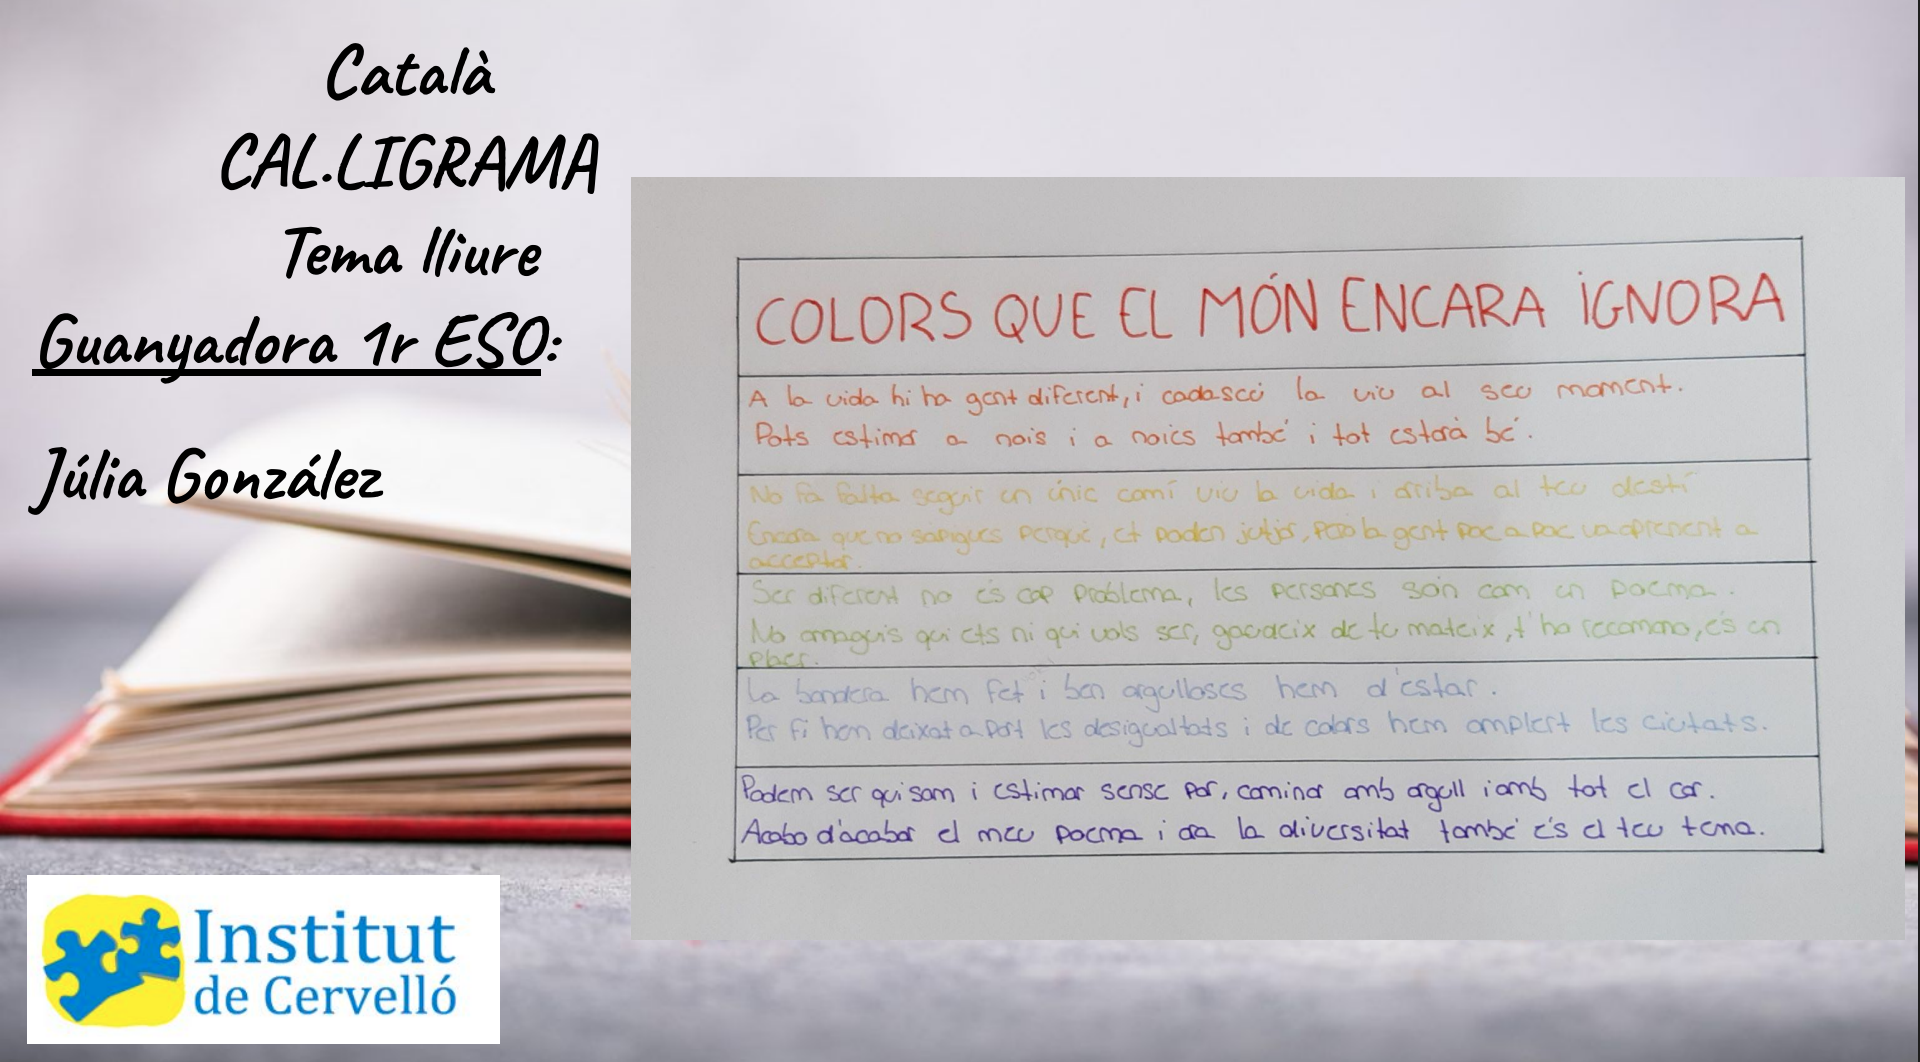 Català
CAL.LIGRAMA
Tema lliure
Guanyadora 1r ESO:
Júlia González
COLORS QUE EL MÓN ENCARA IGNORA
A la vida hi ha gent diferent, i cadascú la viu al seu moment.
Pots estimar a nois i a noies també i tot estarà bé.
No fa falta seguir un únic camí viu la vida i arriba al teu destí
Encara que no sàpigues perquè, et poden jutjar, però la gent poc a poc va aprenent a
acceptar.
Ser diferent no és cap problema, les persones són com un poema.
No amaguis qui ets ni qui vols ser, gaudeix de tu mateix, t'ho recomano, és un
plaer.
La bandera hem fet i ben orgulloses hem d'estar.
Per fi hem deixat a part les desigualtats i de colors hem omplert les ciutats.
Podem ser qui som i estimar sense por, caminar amb orgull i amb tot el cor.
Acabo d'acabar el meu poema i ara la diversitat també és el teu tema.
Institut
de Cervelló